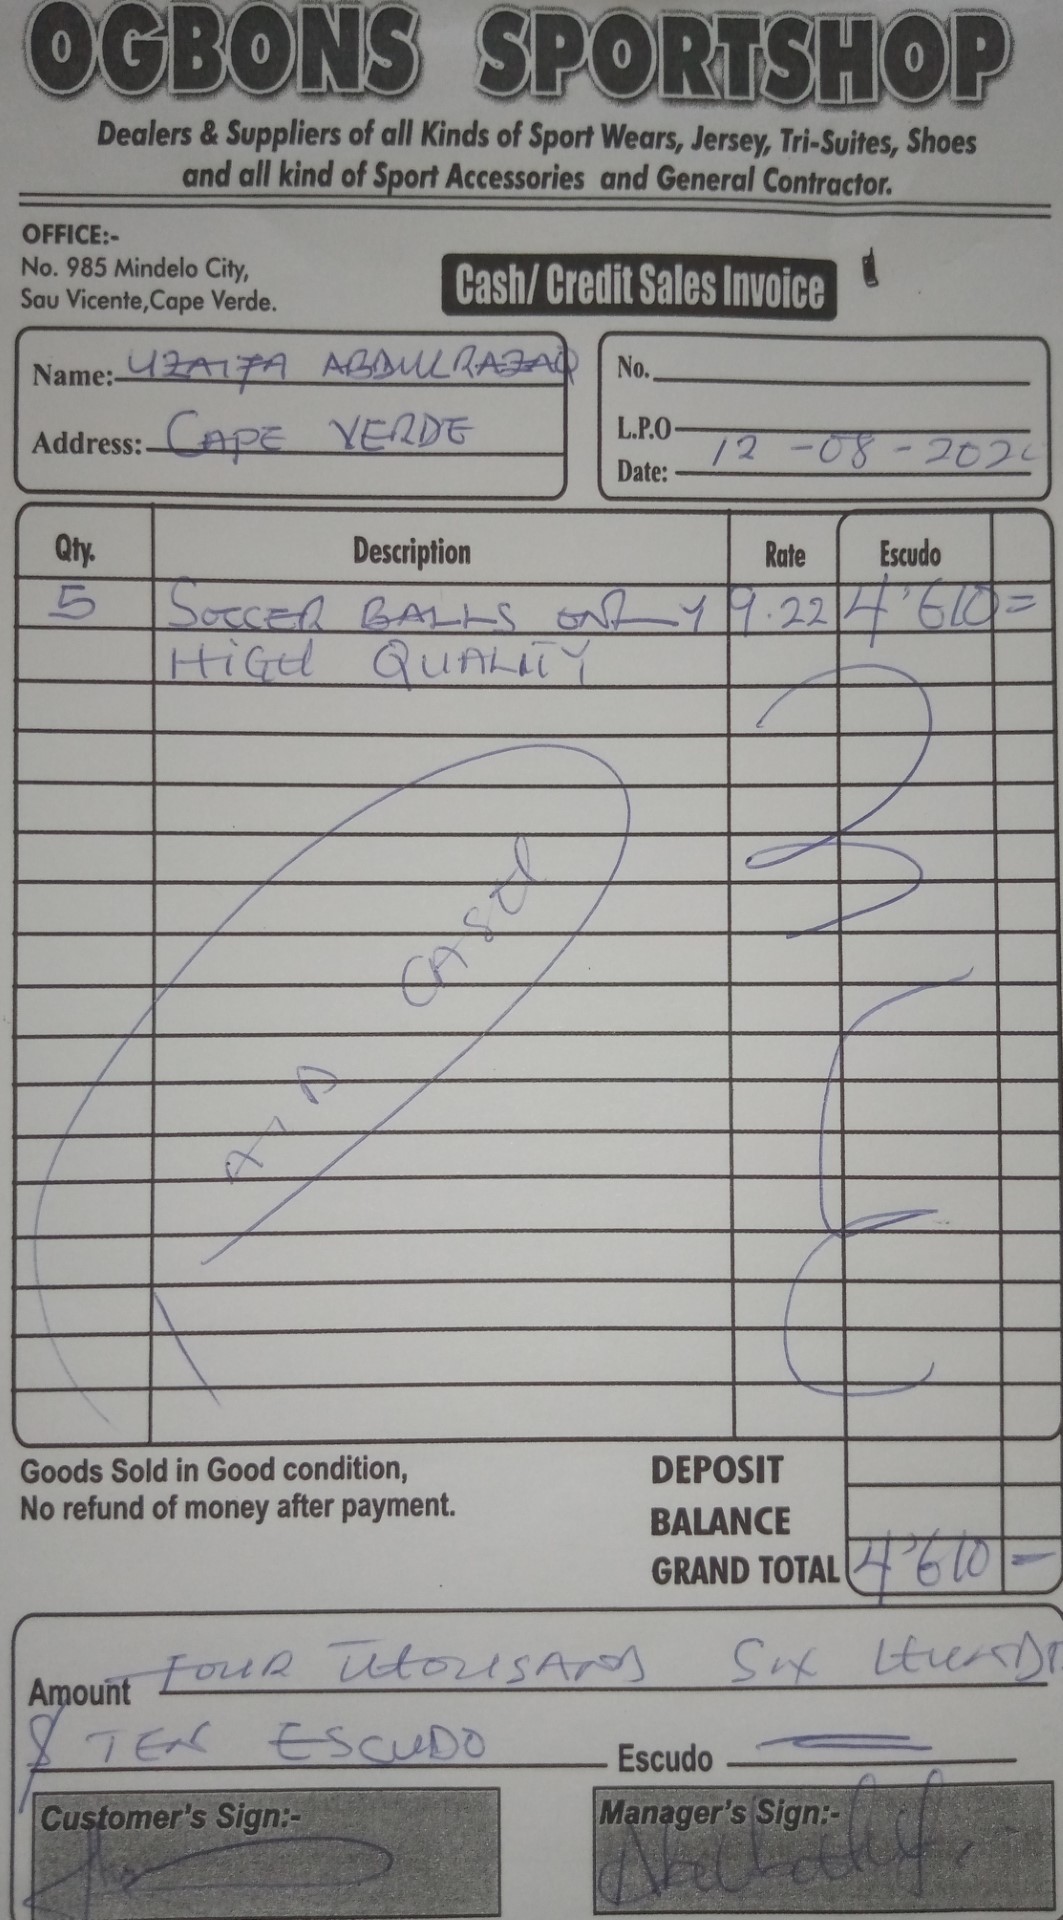 OGBONS SPORTSHOP
Dealers & Suppliers of all Kinds of Sport Wears, Jersey, Tri-Suites, Shoes
and all kind of Sport Accessories and General Contractor.
OFFICE:-
No. 985 Mindelo City,
Sau Vicente,Cape Verde.
Cash/ Credit Sales Invoice
Name: UZAIFA ABDULRAZAQ
Address: CAPE VERDE
No.
L.P.O
Date: 12 -08 -202
Qty. Description Rate Escudo
5 SOCCER BALLS ONLY 9.22 4'610 =
HIGH QUALITY
CASH
Goods Sold in Good condition,
No refund of money after payment.
DEPOSIT
BALANCE
GRAND TOTAL 4'610 =
Amount FOUR THOUSAND SIX HUNDR
& TEN ESCUDO Escudo
Customer's Sign:-
Manager's Sign:-